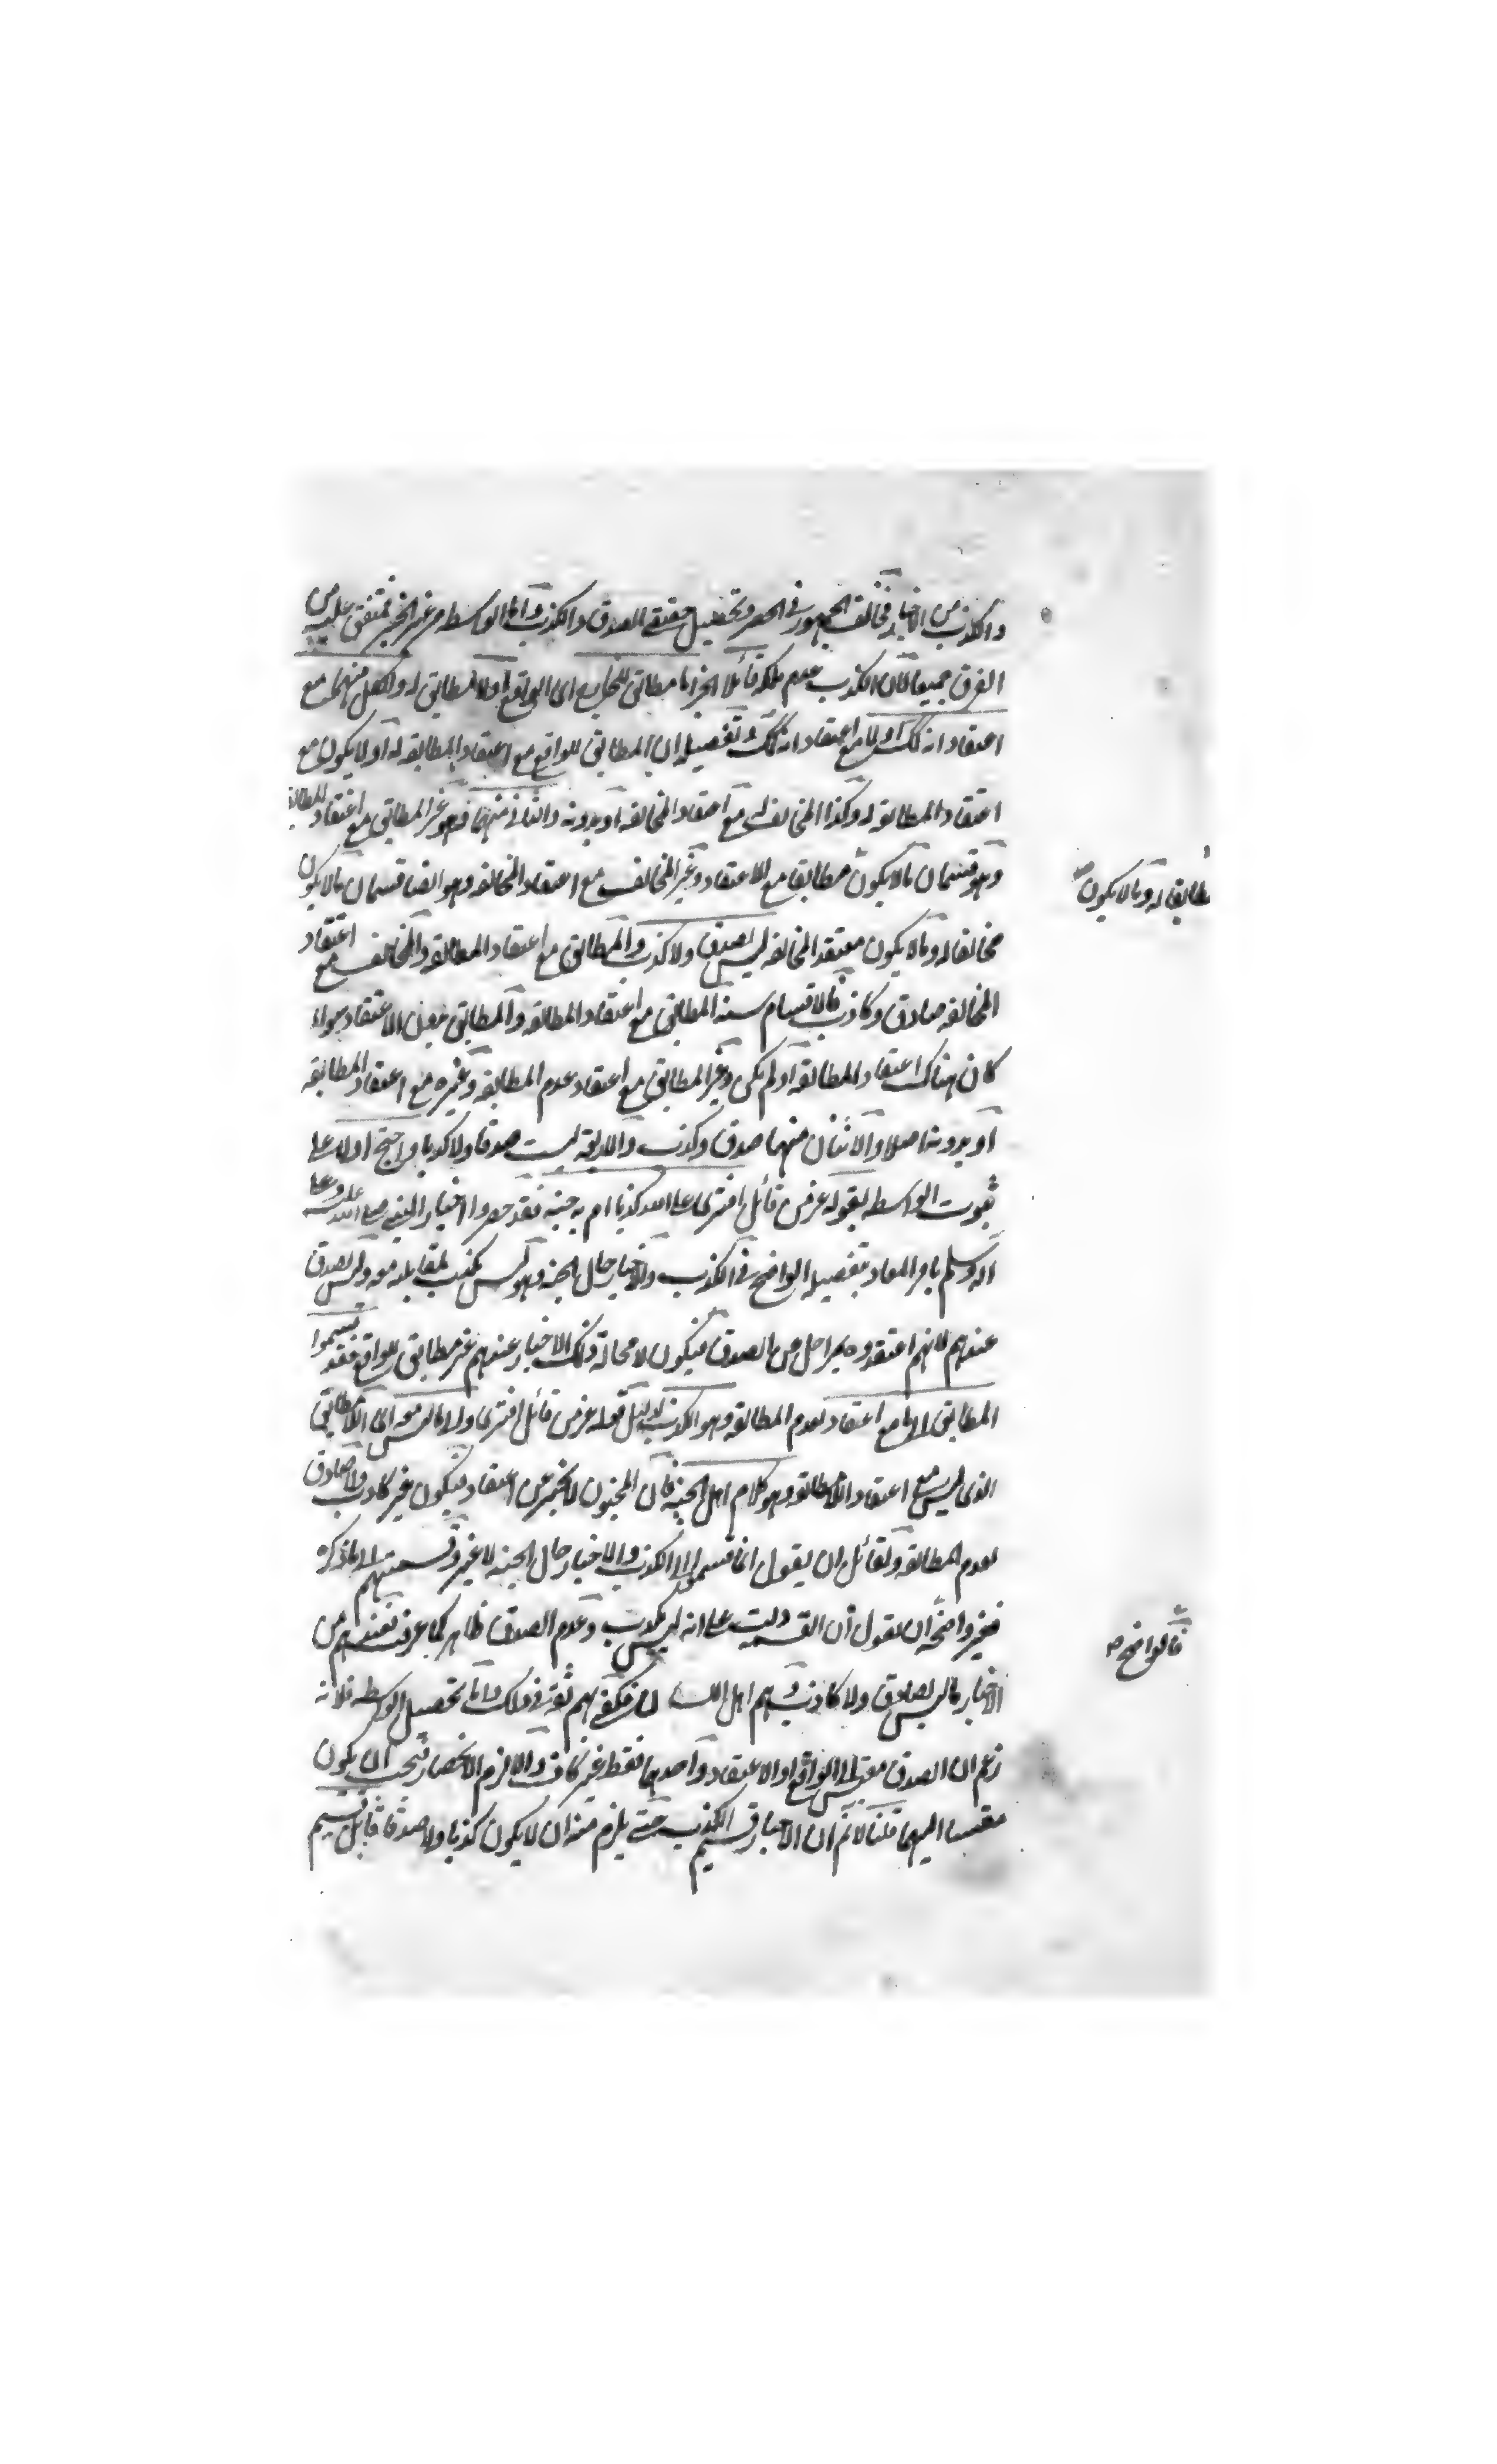 والكذب من الاخبار فخالف الجمهور في الحصر وتحصيل حقيقتي الصدق والكذب واما الواسطة من غير الخبر فمتفق عليه من
الفرق جميعا لان الكذب عدم ملكة قائلا الخبر اما مطابق للخارج اى الواقع اولا مطابق له ولكل منهما مع
اعتقاد انه كك اولا مع اعتقاد انه كك وتفصيله ان المطابق للواقع مع اعتقاد المطابقه له اولا يكون مع
اعتقاد المطابقه له وكذا المخالف له مع اعتقاد المخالفه او بدونه والثانى منهما فهو غير المطابق مع اعتقاد المطابقة
وهو قسمان ما لا يكون مطابقا مع الاعتقاد وغير المخالف مع اعتقاد المخالفه وهو ايضا قسمان ما لا يكون
مطابقا له وما لا يكون
مخالفا له وما لا يكون معتقد المخالفه ليس بصدق ولا كذب والمطابق مع اعتقاد المطابقه والمخالف مع اعتقاد
المخالفه صادق وكاذب فالاقسام ستة المطابق مع اعتقاد المطابقه والمطابق بدون الاعتقاد سواء
كان هناك اعتقاد المطابقه او لم يكن وغير المطابق مع اعتقاد عدم المطابقه وغيره مع اعتقاد المطابقه
او بدونه اصلا والاثنان منهما صدق وكذب والاربعة ليست صدقا ولا كذبا واحتج اولا على
ثبوت الواسطه بقوله عز من قائل افترى على الله كذبا ام به جنة فقد حصروا اخبار النبى صلى الله عليه وعلى
اله وسلم بامر المعاد بتفصيله الواضح في الكذب والاخبار حال الجنة وهو ليس بكذب لمقابلته معه وليس بصدق
عندهم لانهم اعتقدوه بمراحل من الصدق فيكون لا محالة ذلك الاخبار عندهم غير مطابق للواقع فقد قسموا
المطابق الى ما مع اعتقاد لعدم المطابقه وهو الكذب بدليل قوله عز من قائل افترى والى ما ليس معه اى اللامطابق
الذى ليس مع اعتقاد اللامطابقه وهو كلام اهل الجنة فان المجنون لا يخبر عن اعتقاد فيكون غير كاذب ولا صادق
لعدم المطابقه ولقائل ان يقول انما قسموا الى الكذب والاخبار حال الجنة لا غير وقسمتهم الى ما ذكره
غير واضحة ان نقول ان القسمة دلت على انه ليس بكذب وعدم الصدق ظاهر كما عرفت فعندهم من
فالواضح
الاخبار ما ليس بصادق ولا كاذب وهم اهل اللسان فيكفي بهم ثقة فى ذلك واما تحصيل الواسطه فلانه
زعم ان الصدق مقيس الى الواقع او الاعتقاد واحدهما فقط غير كاف والا لزم الانحصار فيجب ان يكون
مقيسا اليهما قلنا لا نم ان الاخبار قسيم الكذب حتى يلزم منه ان لا يكون كذبا ولا صدقا قابل قسيم